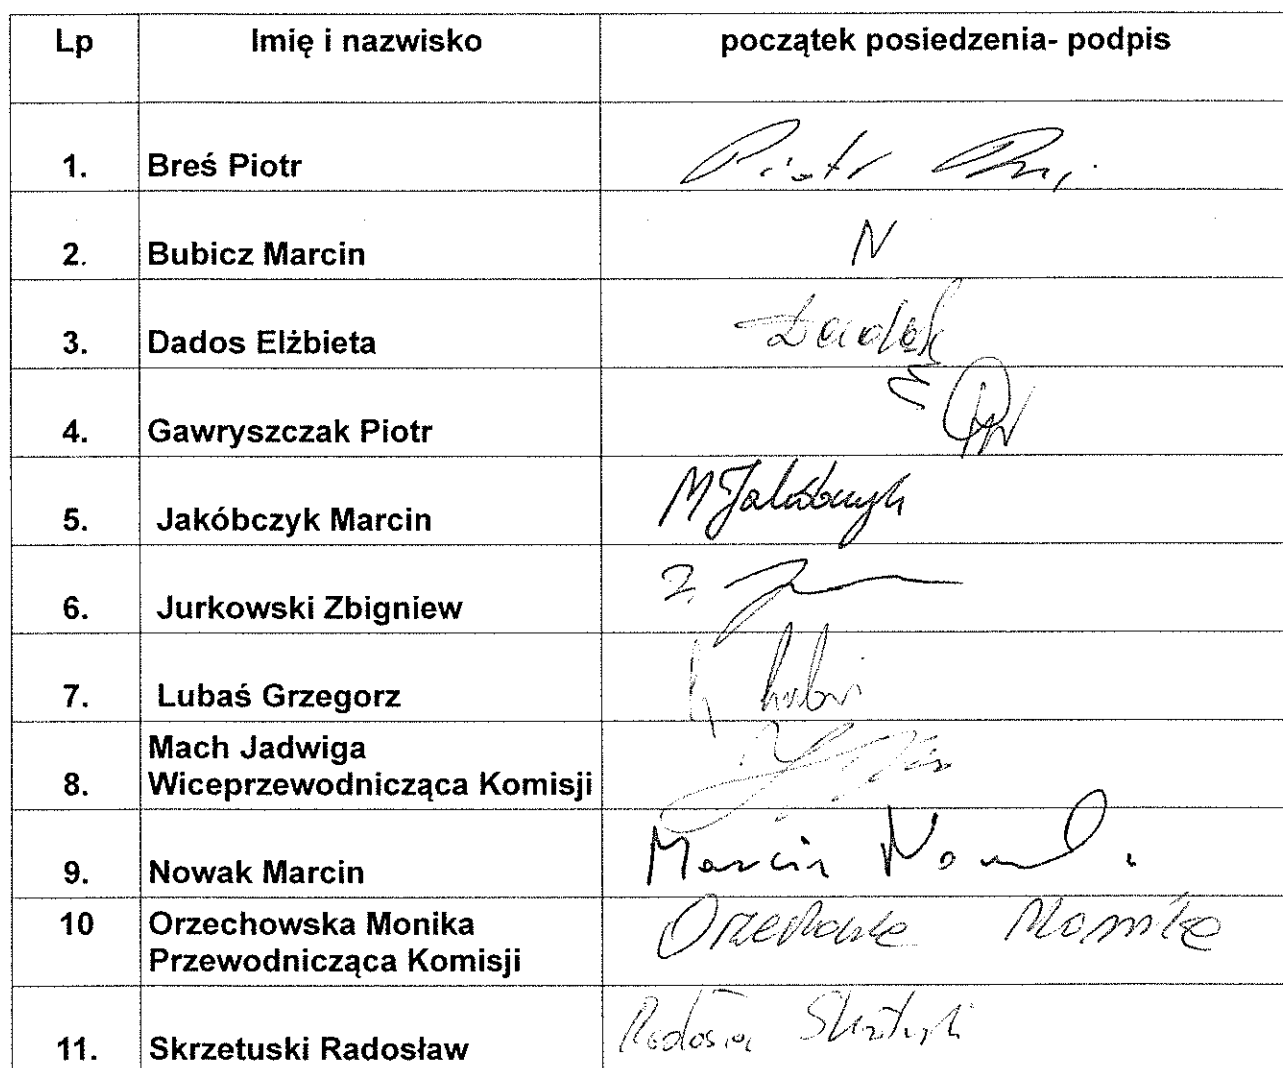 Lp Imię i nazwisko początek posiedzenia- podpis
1. Breś Piotr Piotr
2. Bubicz Marcin N
3. Dados Elżbieta
4. Gawryszczak Piotr
5. Jakóbczyk Marcin M Jakóbczyk
6. Jurkowski Zbigniew Z.
7. Lubaś Grzegorz
Mach Jadwiga
8. Wiceprzewodnicząca Komisji
9. Nowak Marcin Marcin Nowak
10 Orzechowska Monika Monika
Przewodnicząca Komisji
11. Skrzetuski Radosław